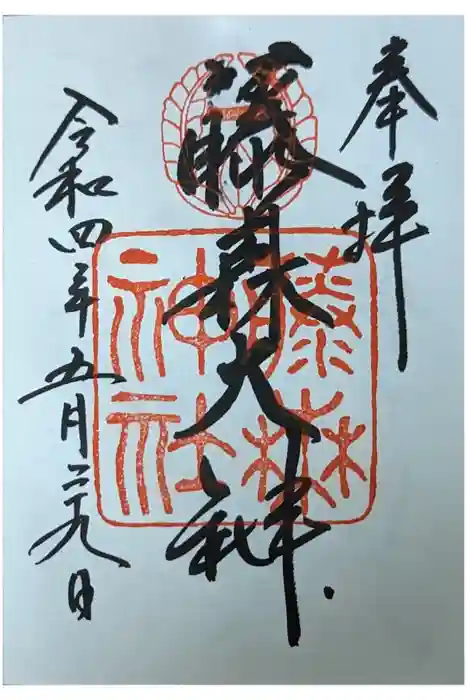 奉拝
藤森大神
藤森
神社
令和四年五月二十九日